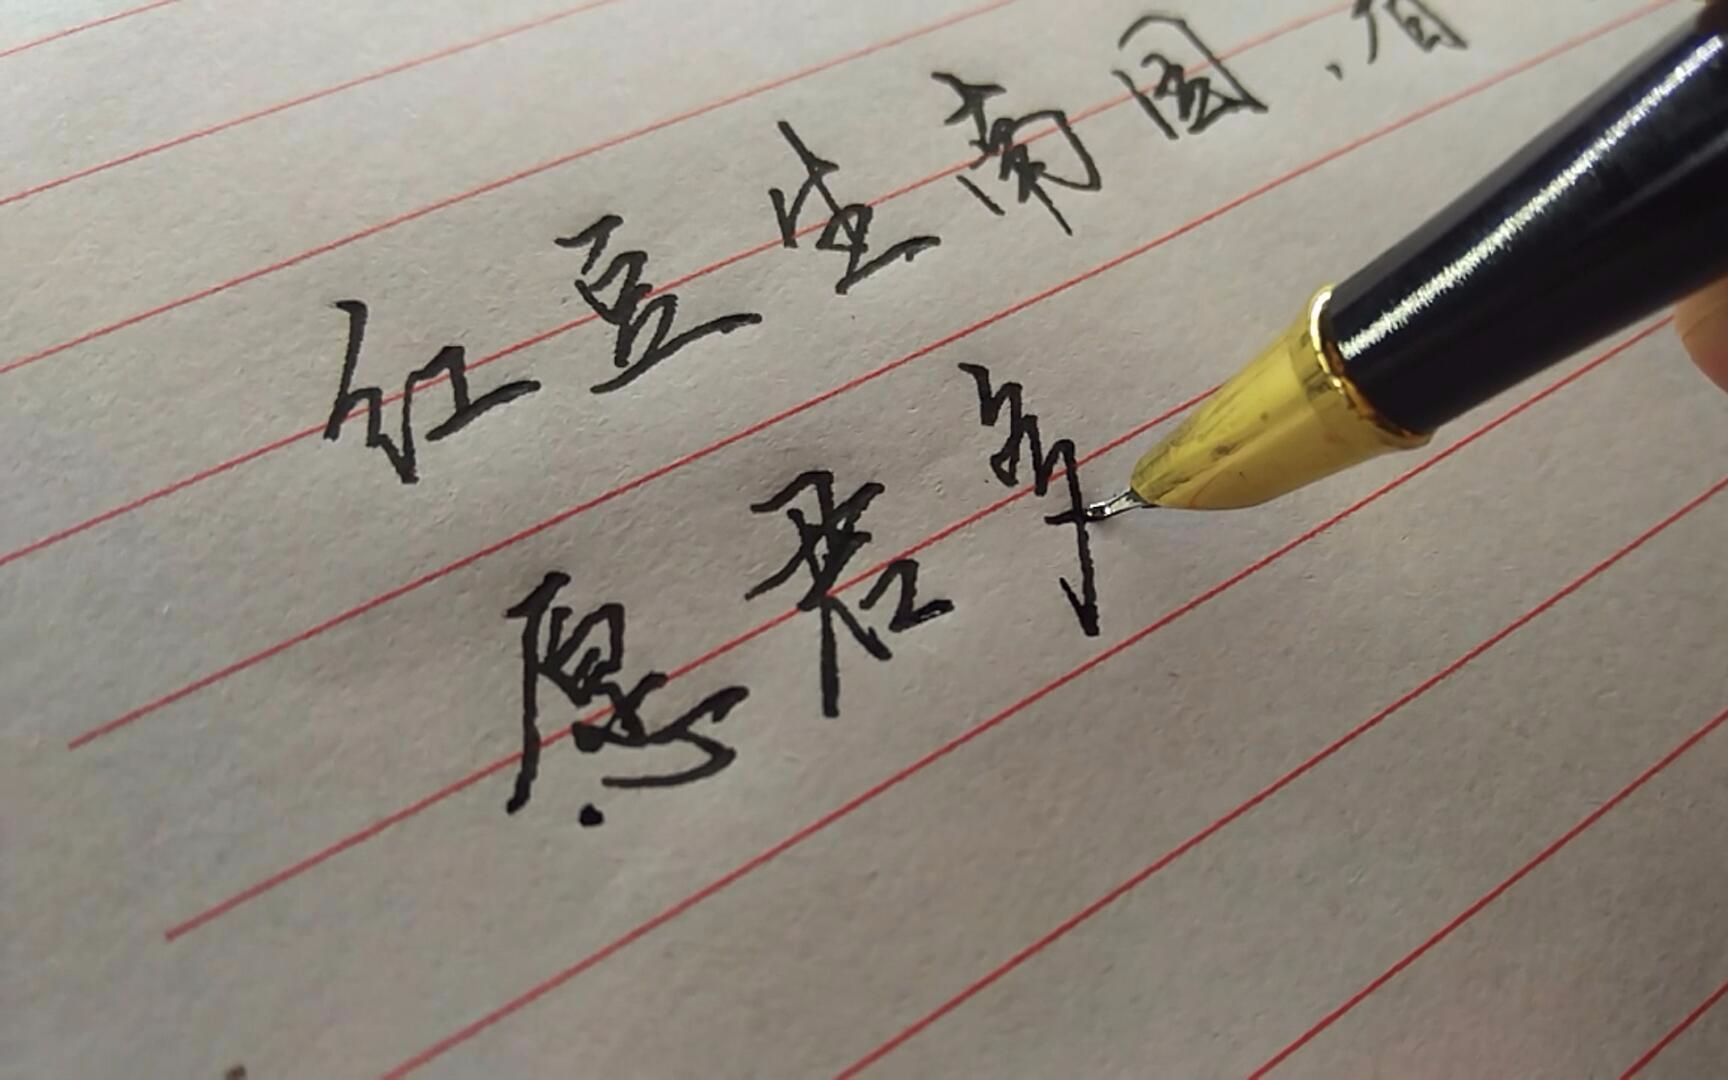 红豆生南国,
愿君